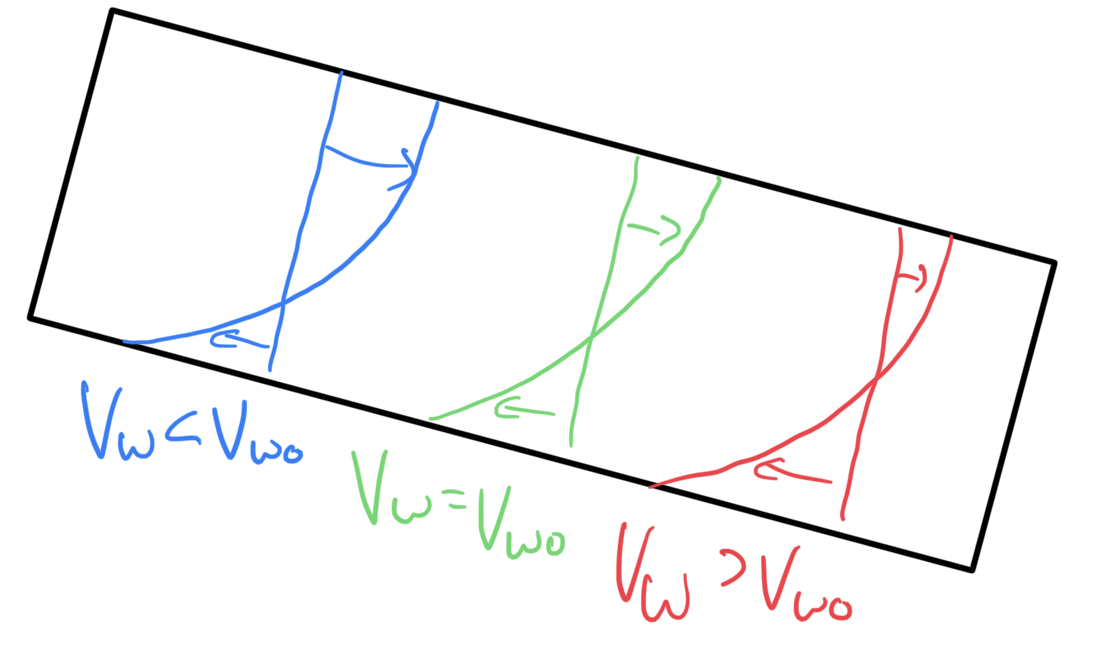 Vw < Vwo
Vw = Vwo
Vw > Vwo